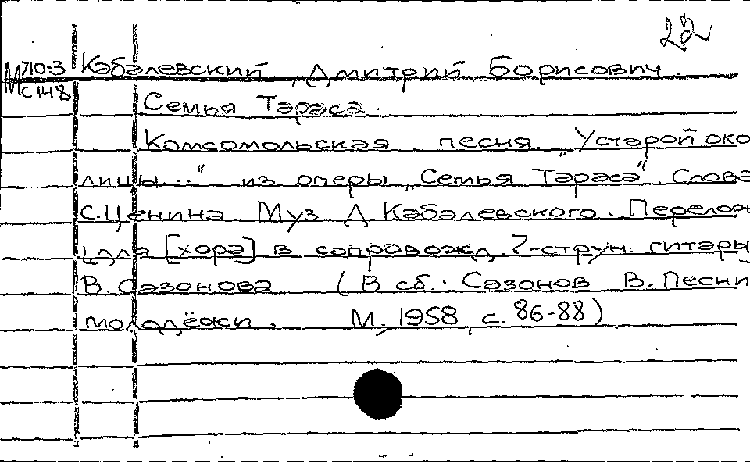 22
М710-3 Кабалевский, Дмитрий Борисович.
С148
Семья Тараса.
Комсомольская песня „У старой око
лицы..." из оперы „Семья Тараса". Слова
С. Ценина Муз Д. Кабалевского. Перелож
для [хора] в сопровожд. 7-струн. гитары
В. Сазонова (В сб.: Сазонов В. Песни
молодёжи. М., 1958, с. 86-88)